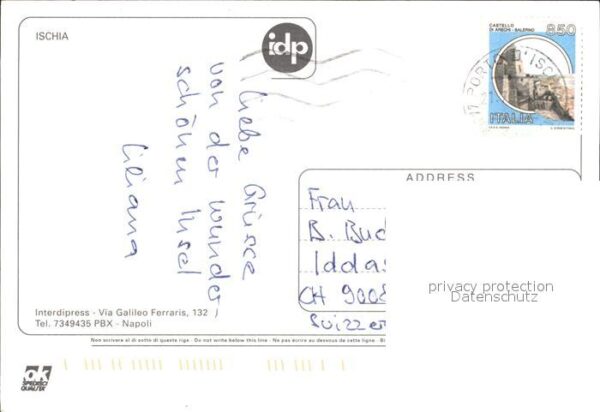 ISCHIA
idp
CASTELLO
DI ARECHI - SALERNO
850
ITALIA
PORTO D'ISCHIA
Liebe Grüsse
von der wunder
schönen Insel
Liliana
ADDRESS
Frau
B. Buc
Iddas
CH 900
Suizzer
privacy protection
Datenschutz
Interdipress - Via Galileo Ferraris, 132
Tel. 7349435 PBX - Napoli
Non scrivere al di sotto di questa riga - Do not write below this line - Ne pas écrire au dessous de cette ligne -
ok